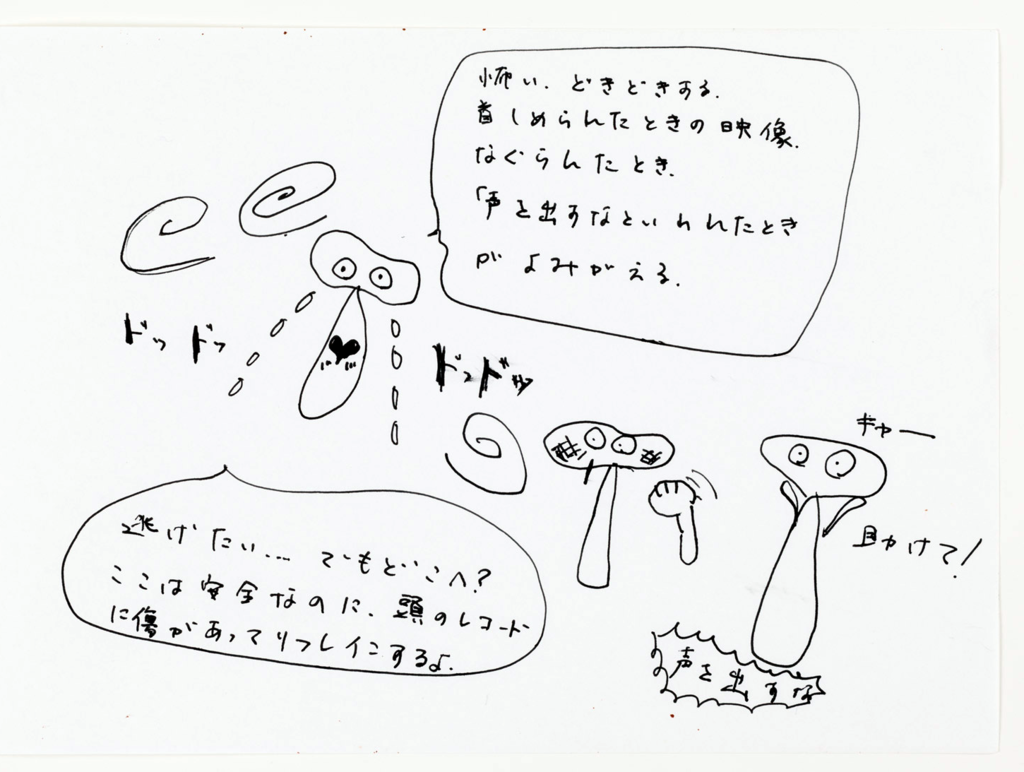 怖い、どきどきする。
首しめらんたときの映像。
なぐらんたとき、
「声を出すなといわれたとき
がよみがえる。
ドッドッ
ドッドッ
ギャー
助けて!
逃げたい… でもどこへ?
ここは安全なのに、頭のレコード
に傷があってリフレインするよ。
声を出すな